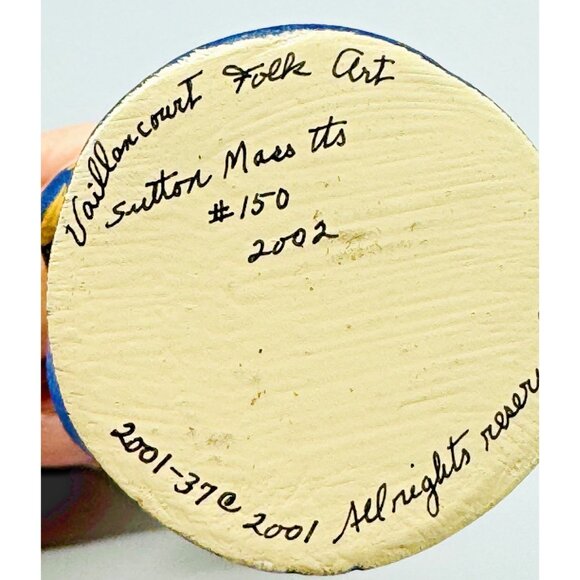 Vaillancourt Folk Art
Sutton Mass tts
#150
2002
2001-37 © 2001 All rights reser